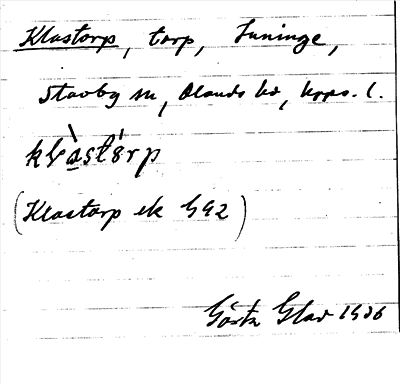 Klastorp, torp, Tuninge,
Stavby sn, Olands hd, Upps. l.
(Klastorp ek 592)
Gösta Glav 1936